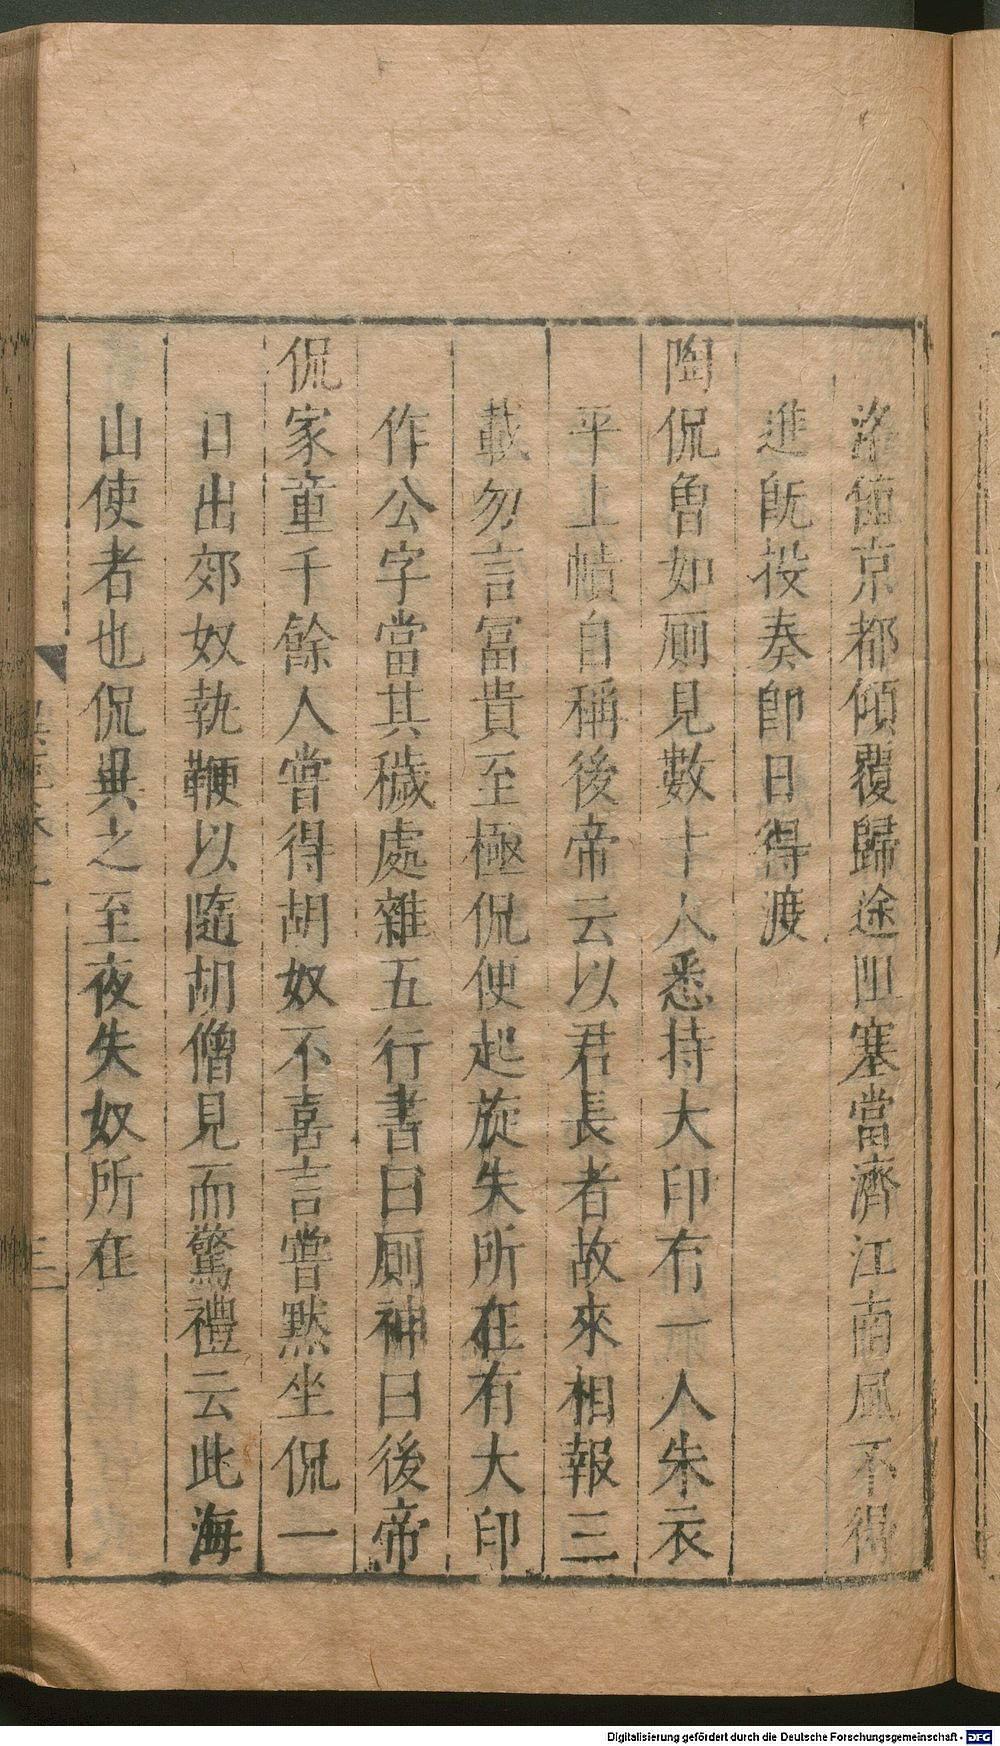 洛值京都傾覆歸途阻塞當濟江南風不得
進既投奏即日得渡
陶侃曾如厠見數十人悉持大印有一人朱衣
平上幘自稱後帝云以君長者故來相報三
載勿言富貴至極侃便起旋失所在有大印
作公字當其穢處雜五行書曰厠神曰後帝
侃家童千餘人嘗得胡奴不喜言嘗黙坐侃一
日出郊奴執鞭以隨胡僧見而驚禮云此海
山使者也侃異之至夜失奴所在
異苑卷
Digitalisierung gefördert durch die Deutsche Forschungsgemeinschaft - DFG